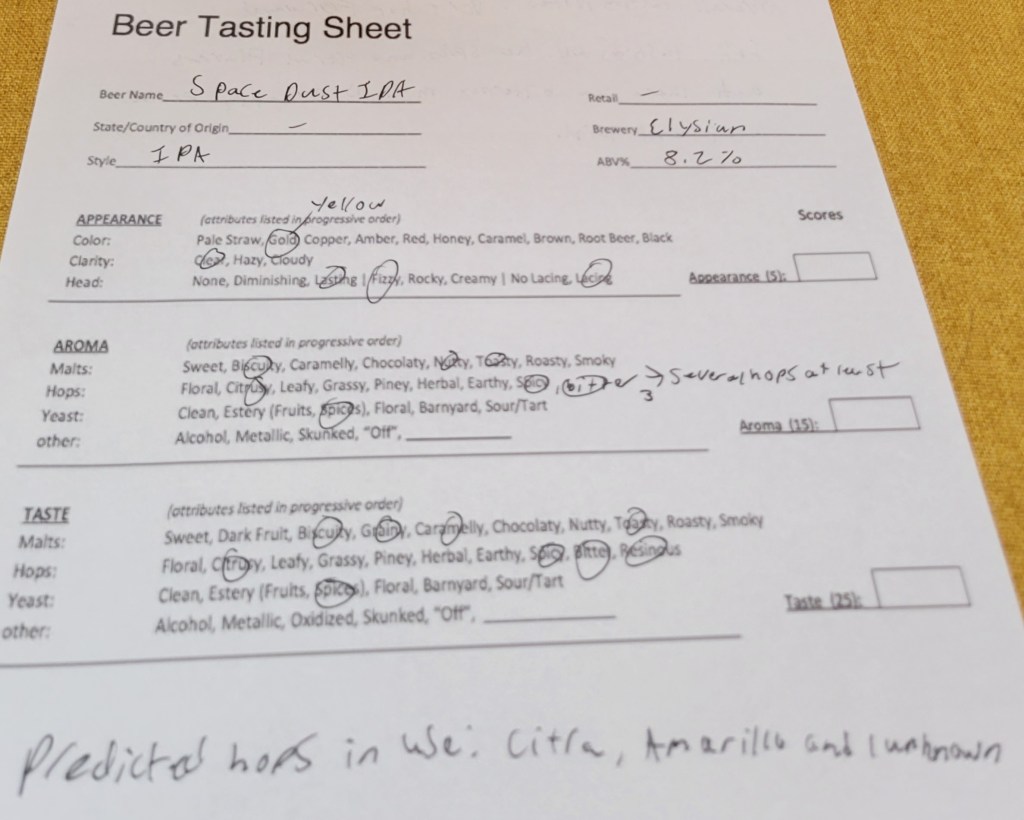 Beer Tasting Sheet
Beer Name Space Dust IPA Retail –
State/Country of Origin – Brewery Elysian
Style IPA ABV% 8.2%
Yellow
APPEARANCE (attributes listed in progressive order) Scores
Color: Pale Straw, Gold, Copper, Amber, Red, Honey, Caramel, Brown, Root Beer, Black
Clarity: Clear, Hazy, Cloudy
Head: None, Diminishing, Lasting | Fizzy, Rocky, Creamy | No Lacing, Lacing Appearance (5):
AROMA (attributes listed in progressive order)
Malts: Sweet, Biscuity, Caramelly, Chocolaty, Nutty, Toasty, Roasty, Smoky
Hops: Floral, Citrusy, Leafy, Grassy, Piney, Herbal, Earthy, Spicy, bitter → Several hops at least
3
Yeast: Clean, Estery (Fruits, Spices), Floral, Barnyard, Sour/Tart
other: Alcohol, Metallic, Skunked, "Off", Aroma (15):
TASTE (attributes listed in progressive order)
Malts: Sweet, Dark Fruit, Biscuity, Grainy, Caramelly, Chocolaty, Nutty, Toasty, Roasty, Smoky
Hops: Floral, Citrusy, Leafy, Grassy, Piney, Herbal, Earthy, Spicy, Bitter, Resinous
Yeast: Clean, Estery (Fruits, Spices), Floral, Barnyard, Sour/Tart Taste (25):
other: Alcohol, Metallic, Oxidized, Skunked, "Off",
Predicted hops in use: Citra, Amarillo and 1 unknown